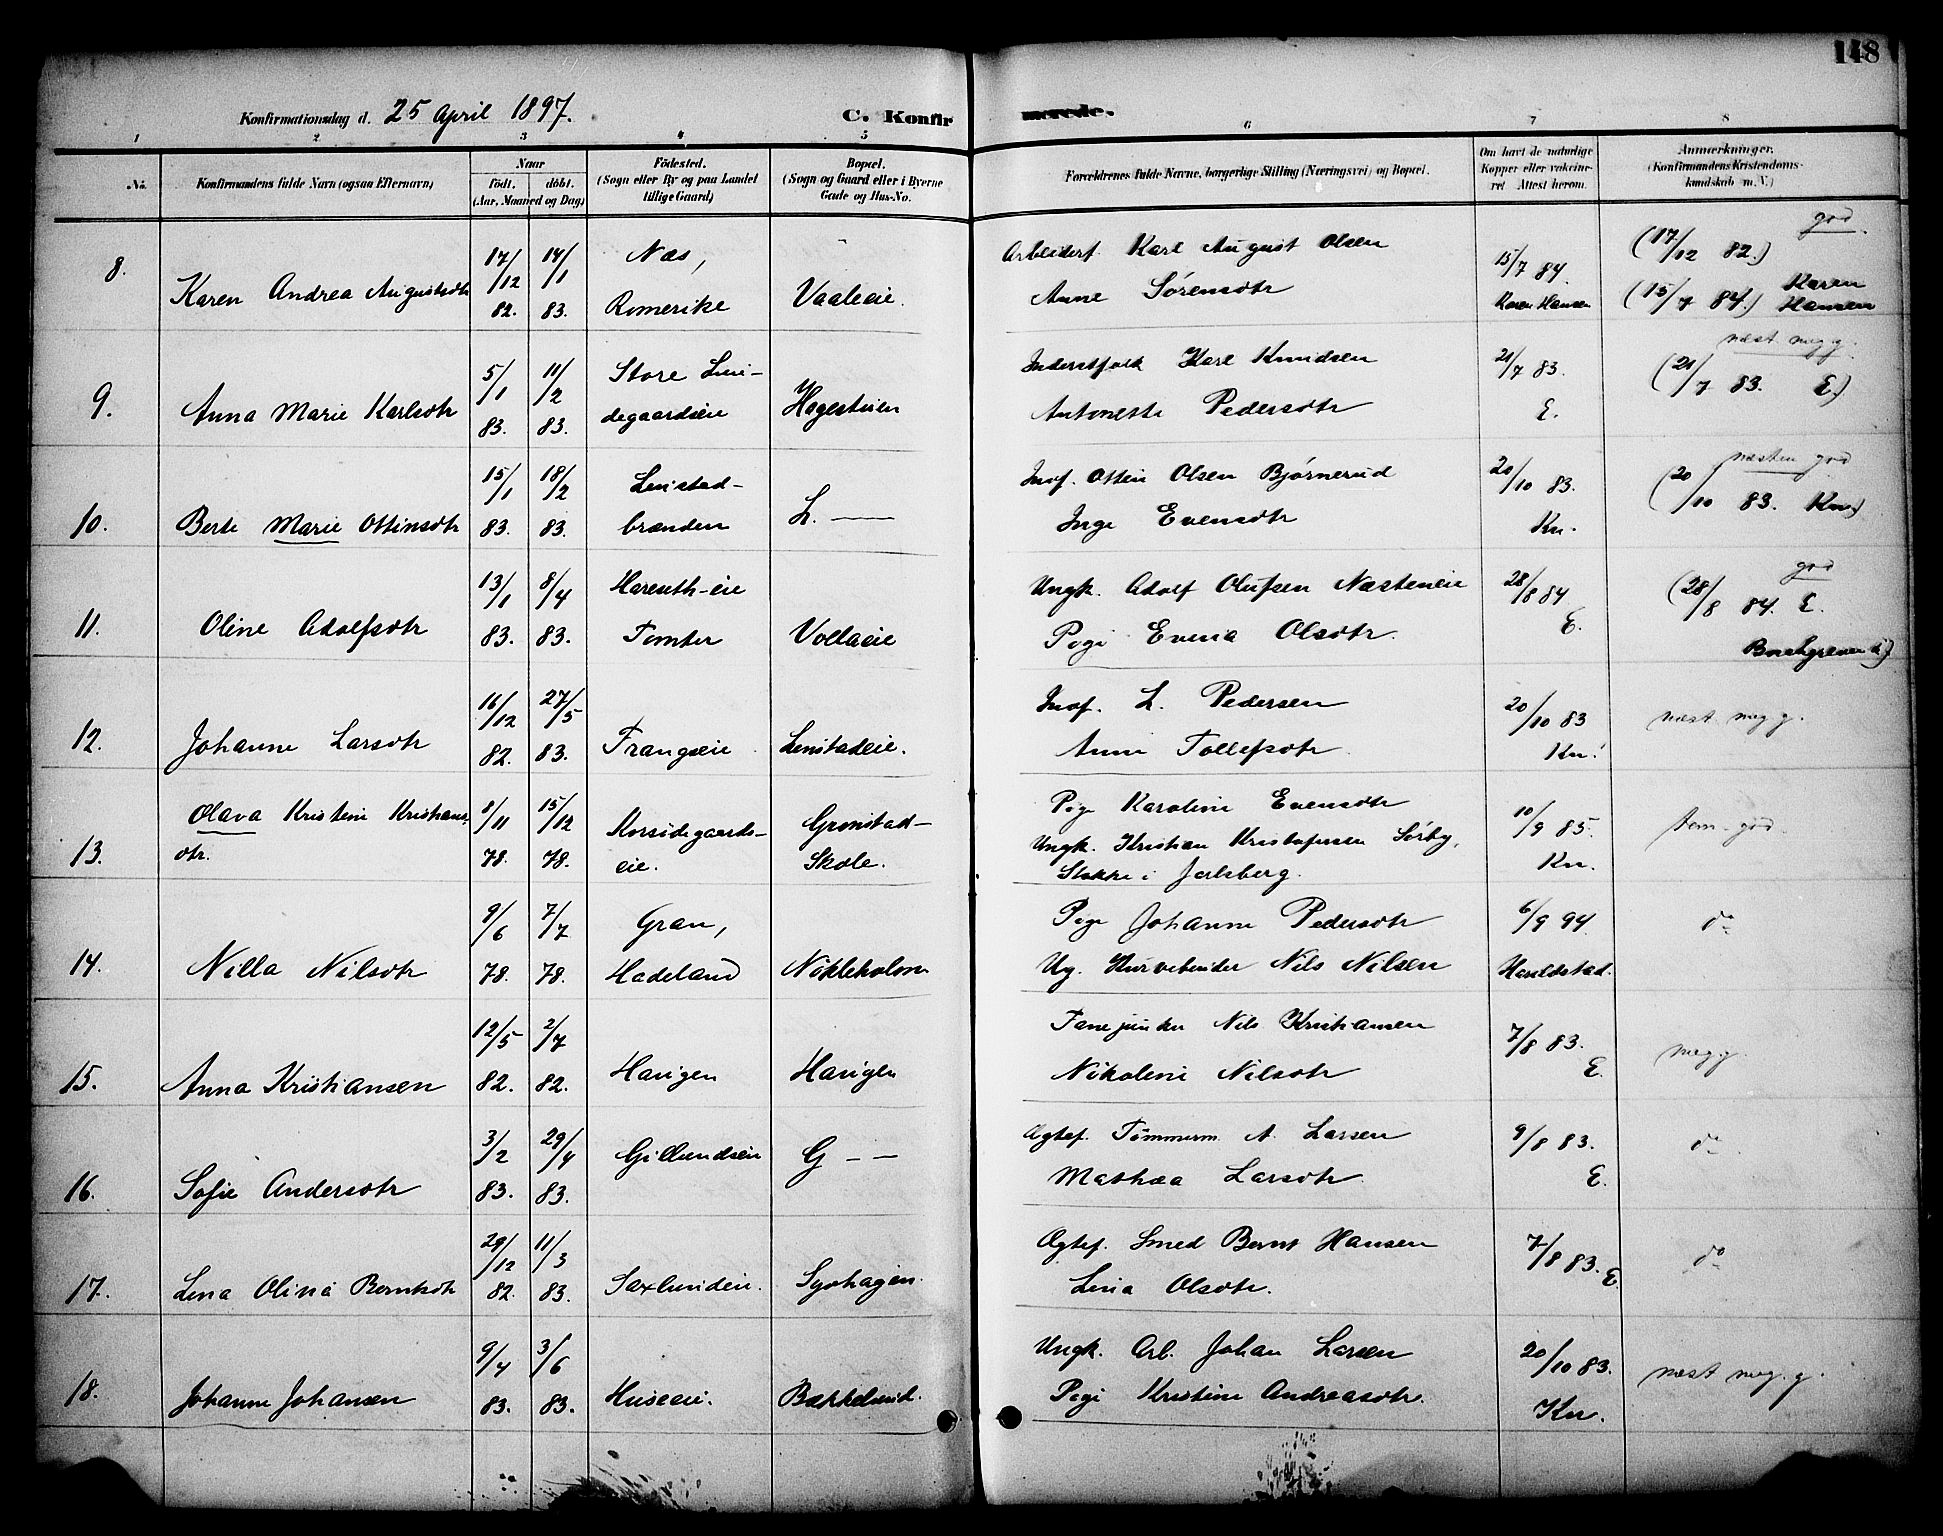 148
Konfirmationsdag d. 25 April 1897. C. Konfirmerede.
1 2 3 4 5 6 7 8
No. Konfirmandens fulde Navn (ogsaa Efternavn) Naar födt. döbt. (Aar, Maaned og Dag) Födested. (Sogn eller By og paa Landet tillige Gaard) Bopæl. (Sogn og Gaard eller i Byerne Gade og Hus-No. Forældrenes fulde Navne, borgerlige Stilling (Næringsvei) og Bopæl. Om havt de naturlige Kopper eller vakcineret Attest herom. Anmærkninger. (Konfirmandens Kristendomskundskab m. V.)
8. Karen Andrea Augustsdtr 17/12 82. 14/1 83. Næs, Romerike Vaaleeie. Arbeiderf. Karl August Olsen Anne Sørensdtr 15/7 84. Karen Hansen god. (17/12 82.) (15/7 84.) Karen Hansen
9. Anna Marie Karlsdtr 5/1 83. 11/2 83. Store Lundegaardseie Hagestuen Inderstfolk Karl Knudsen Antonette Pedersdtr 21/7 83. E. næst meg g. (21/7 83. E.)
10. Berte Marie Ottinsdtr 15/1 83. 18/2 83. Linstadbrænden L. — Indf. Ottin Olsen Bjørnerud Inge Evensdtr 20/10 83. Kn. næsten god (20/10 83. Kn.)
11. Oline Adolfsdtr 13/1 83. 8/4 83. Harenth-eie Tomter Vollaeie Ungk. Adolf Olufsen Næsteneie Pige Evena Olsdtr. 28/8 84 E. god (28/8 84. E.
12. Johanne Larsdtr 16/12 82. 27/5 83. Frangseie Linstadeie. Indf. L. Pedersen Anne Tollefsdtr 20/10 83 Kn. næst meg g.
13. Olava Kristine Kristiansdtr. 8/11 78. 15/12 78. Korsødegaardseie. Grønstad-Skole. Pige Karoline Evensdtr Ungk. Kristian Kristofersen Sörby, Stokke i Jarlsberg. 10/9 85. Kn. tem. god.
14. Nilla Nilsdtr 9/6 78. 7/7 78. Gran, Hadeland Nökleholm Pige Johanne Pedersdtr Ug. Kurvebinder Nils Nilsen 6/9 94. Haraldstad. do
15. Anna Kristiansen 12/5 82. 2/7 82. Haugen Haugen Fanejunker Nils Kristiansen Nikoline Nilsdtr 7/8 83. E. meg g.
16. Sofie Andersdtr 3/2 83. 29/4 83. Gillundseie G — — Ægtef. Tömmerm. A. Larsen Mathea Larsdtr 9/8 83. E. do
17. Lina Olina Berntsdtr 29/12 82. 11/3 83. Saxlundeie. Syohagen. Ægtef. Smed Bernt Hansen Lina Olsdtr. 7/8 83. E. do
18. Johanne Johansen 9/4 83. 3/6 83. Huseeie. Bækkelund. Ungk. Arb. Johan Larsen Pige Kristine Andreasdtr. 20/10 83. Kn. næst meg. g.